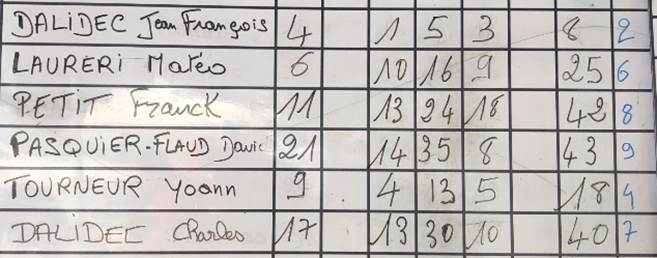 DALIDEC Jean François 4 1 5 3 8 2
LAURERI Matéo 6 10 16 9 25 6
PETIT Franck 11 13 24 18 42 8
PASQUIER-FLAUD Davic 21 14 35 8 43 9
TOURNEUR Yoann 9 4 13 5 18 4
DALIDEC Charles 17 13 30 10 40 7